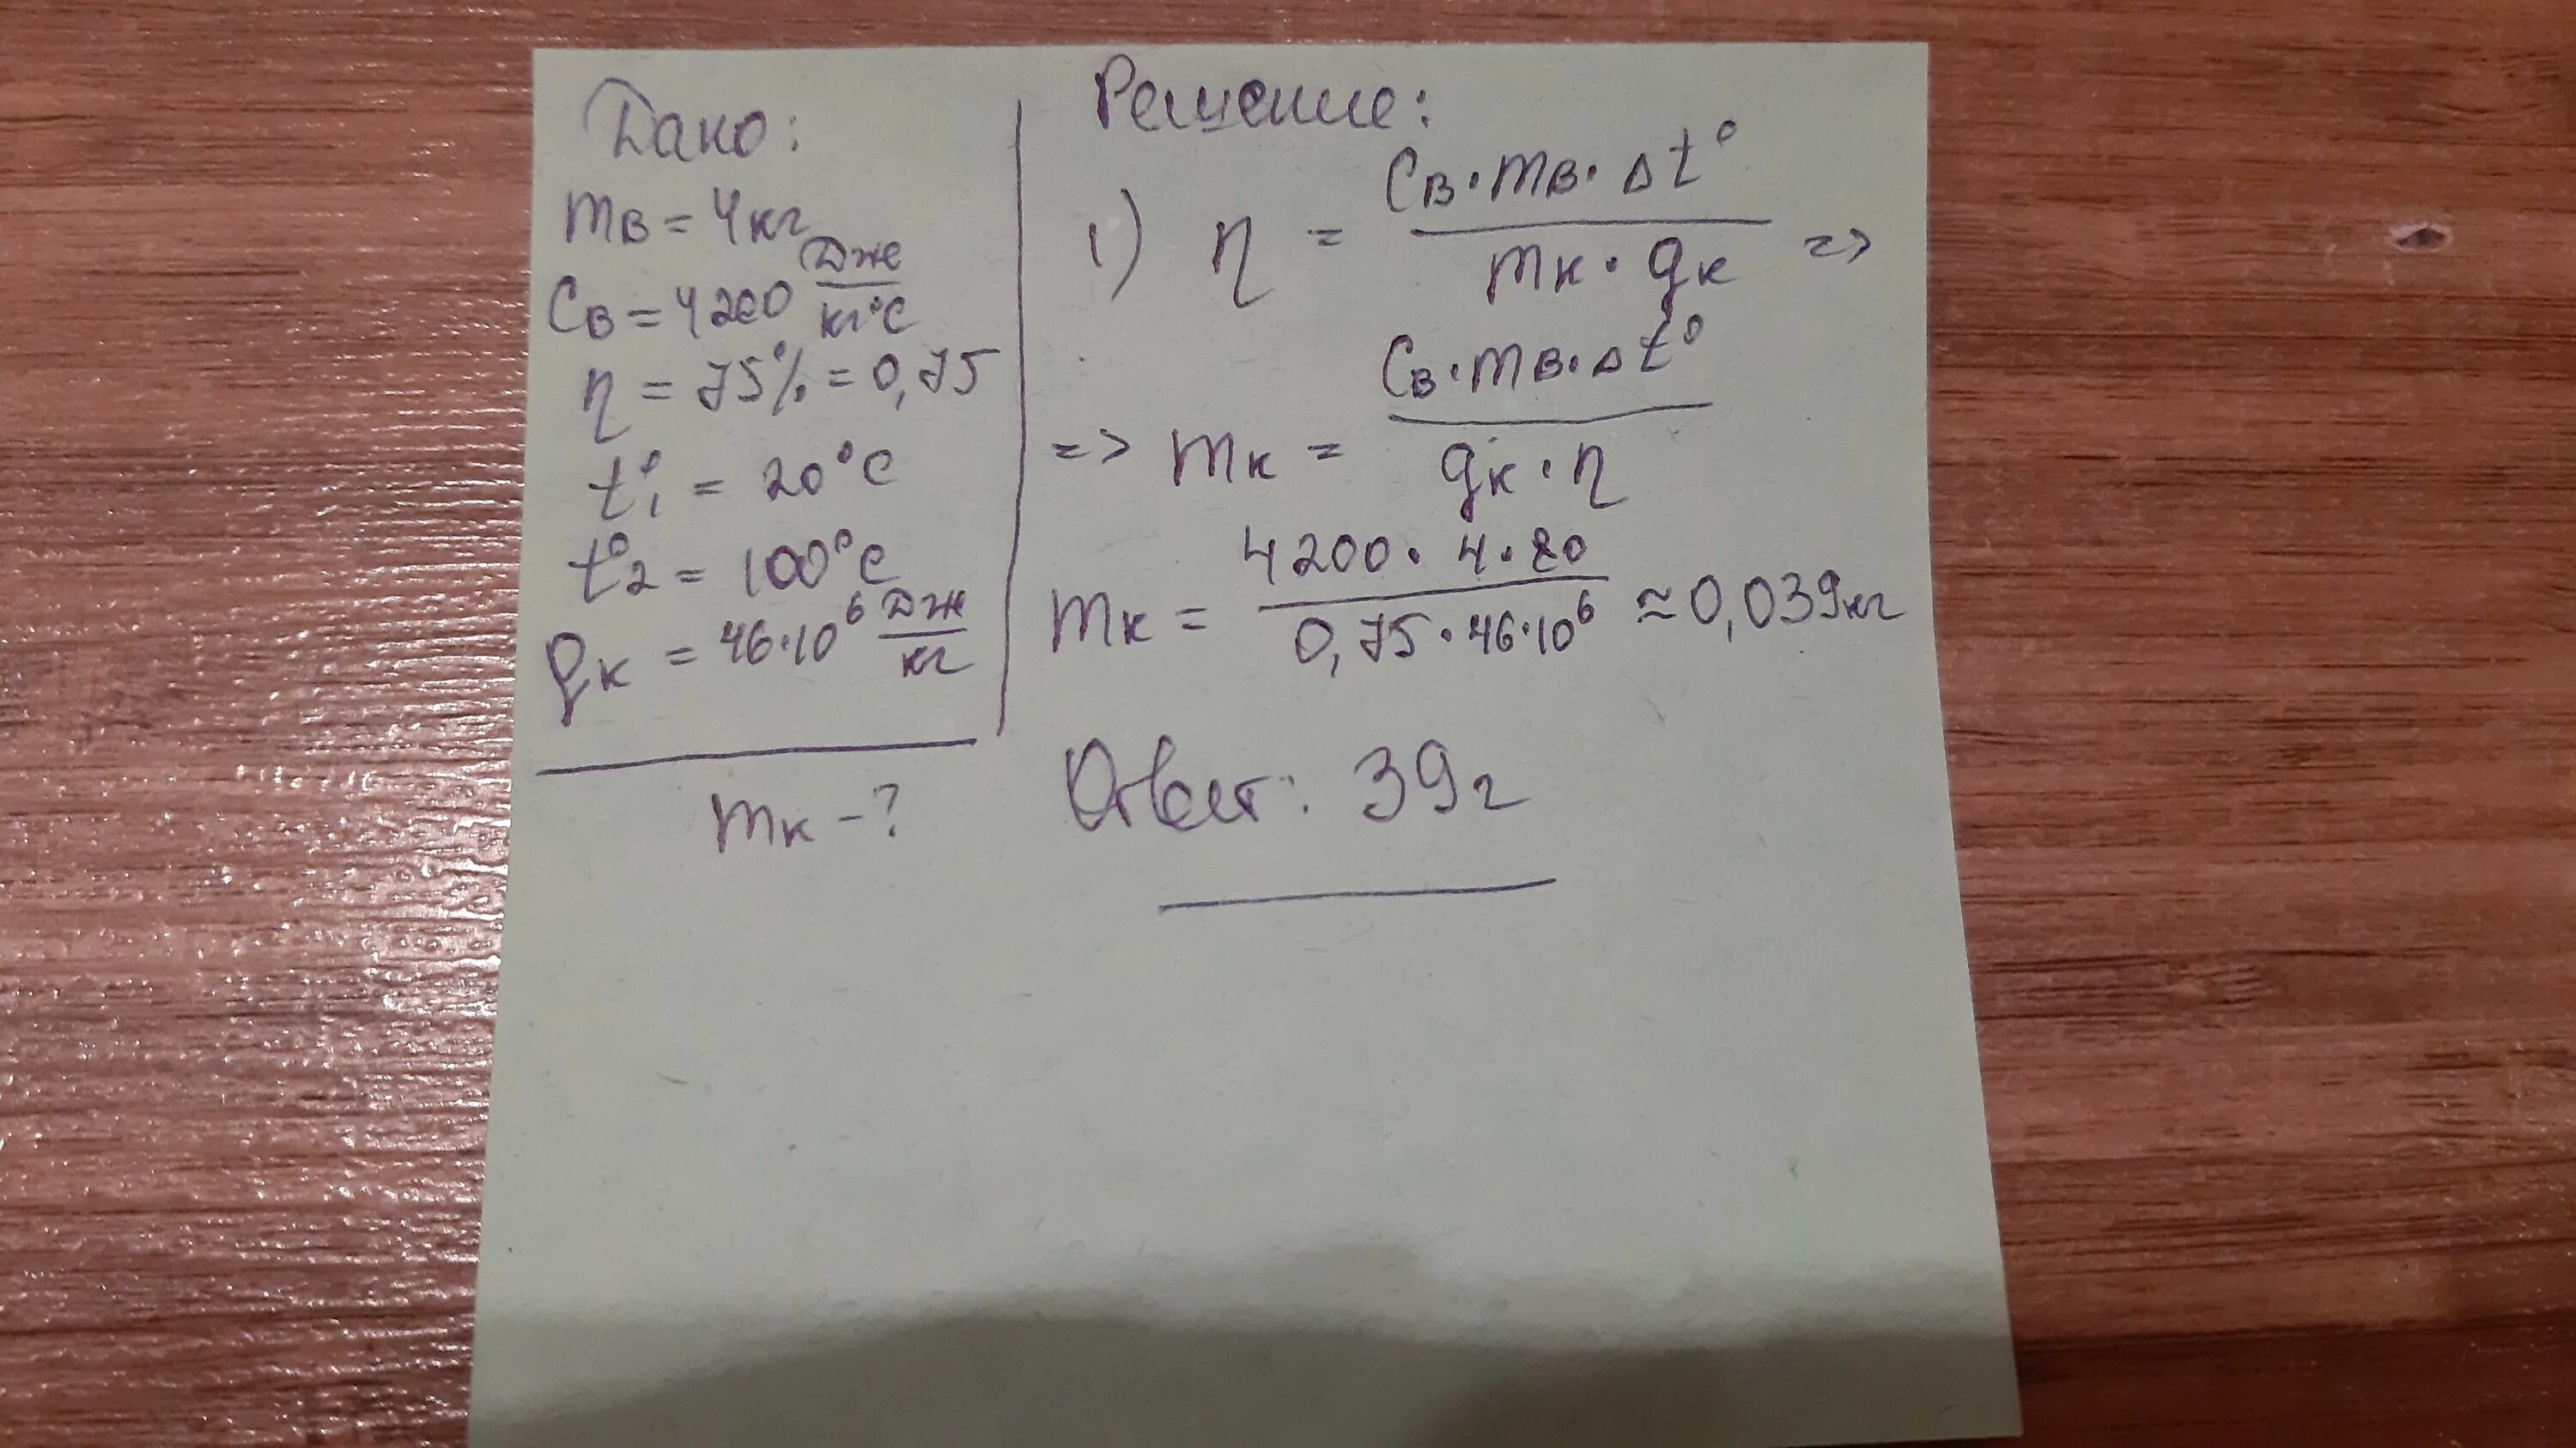 Дано:
mв = 4кг
Cв = 4200 Дж/кг°C
η = 75% = 0,75
t°1 = 20°C
t°2 = 100°C
qк = 46·10⁶ Дж/кг
mк - ?
Решение:
1) η = Cв·mв·Δt° / mк·qк =>
=> mк = Cв·mв·Δt° / qк·η
mк = 4200·4·80 / 0,75·46·10⁶ ≈ 0,039кг
Ответ: 39г